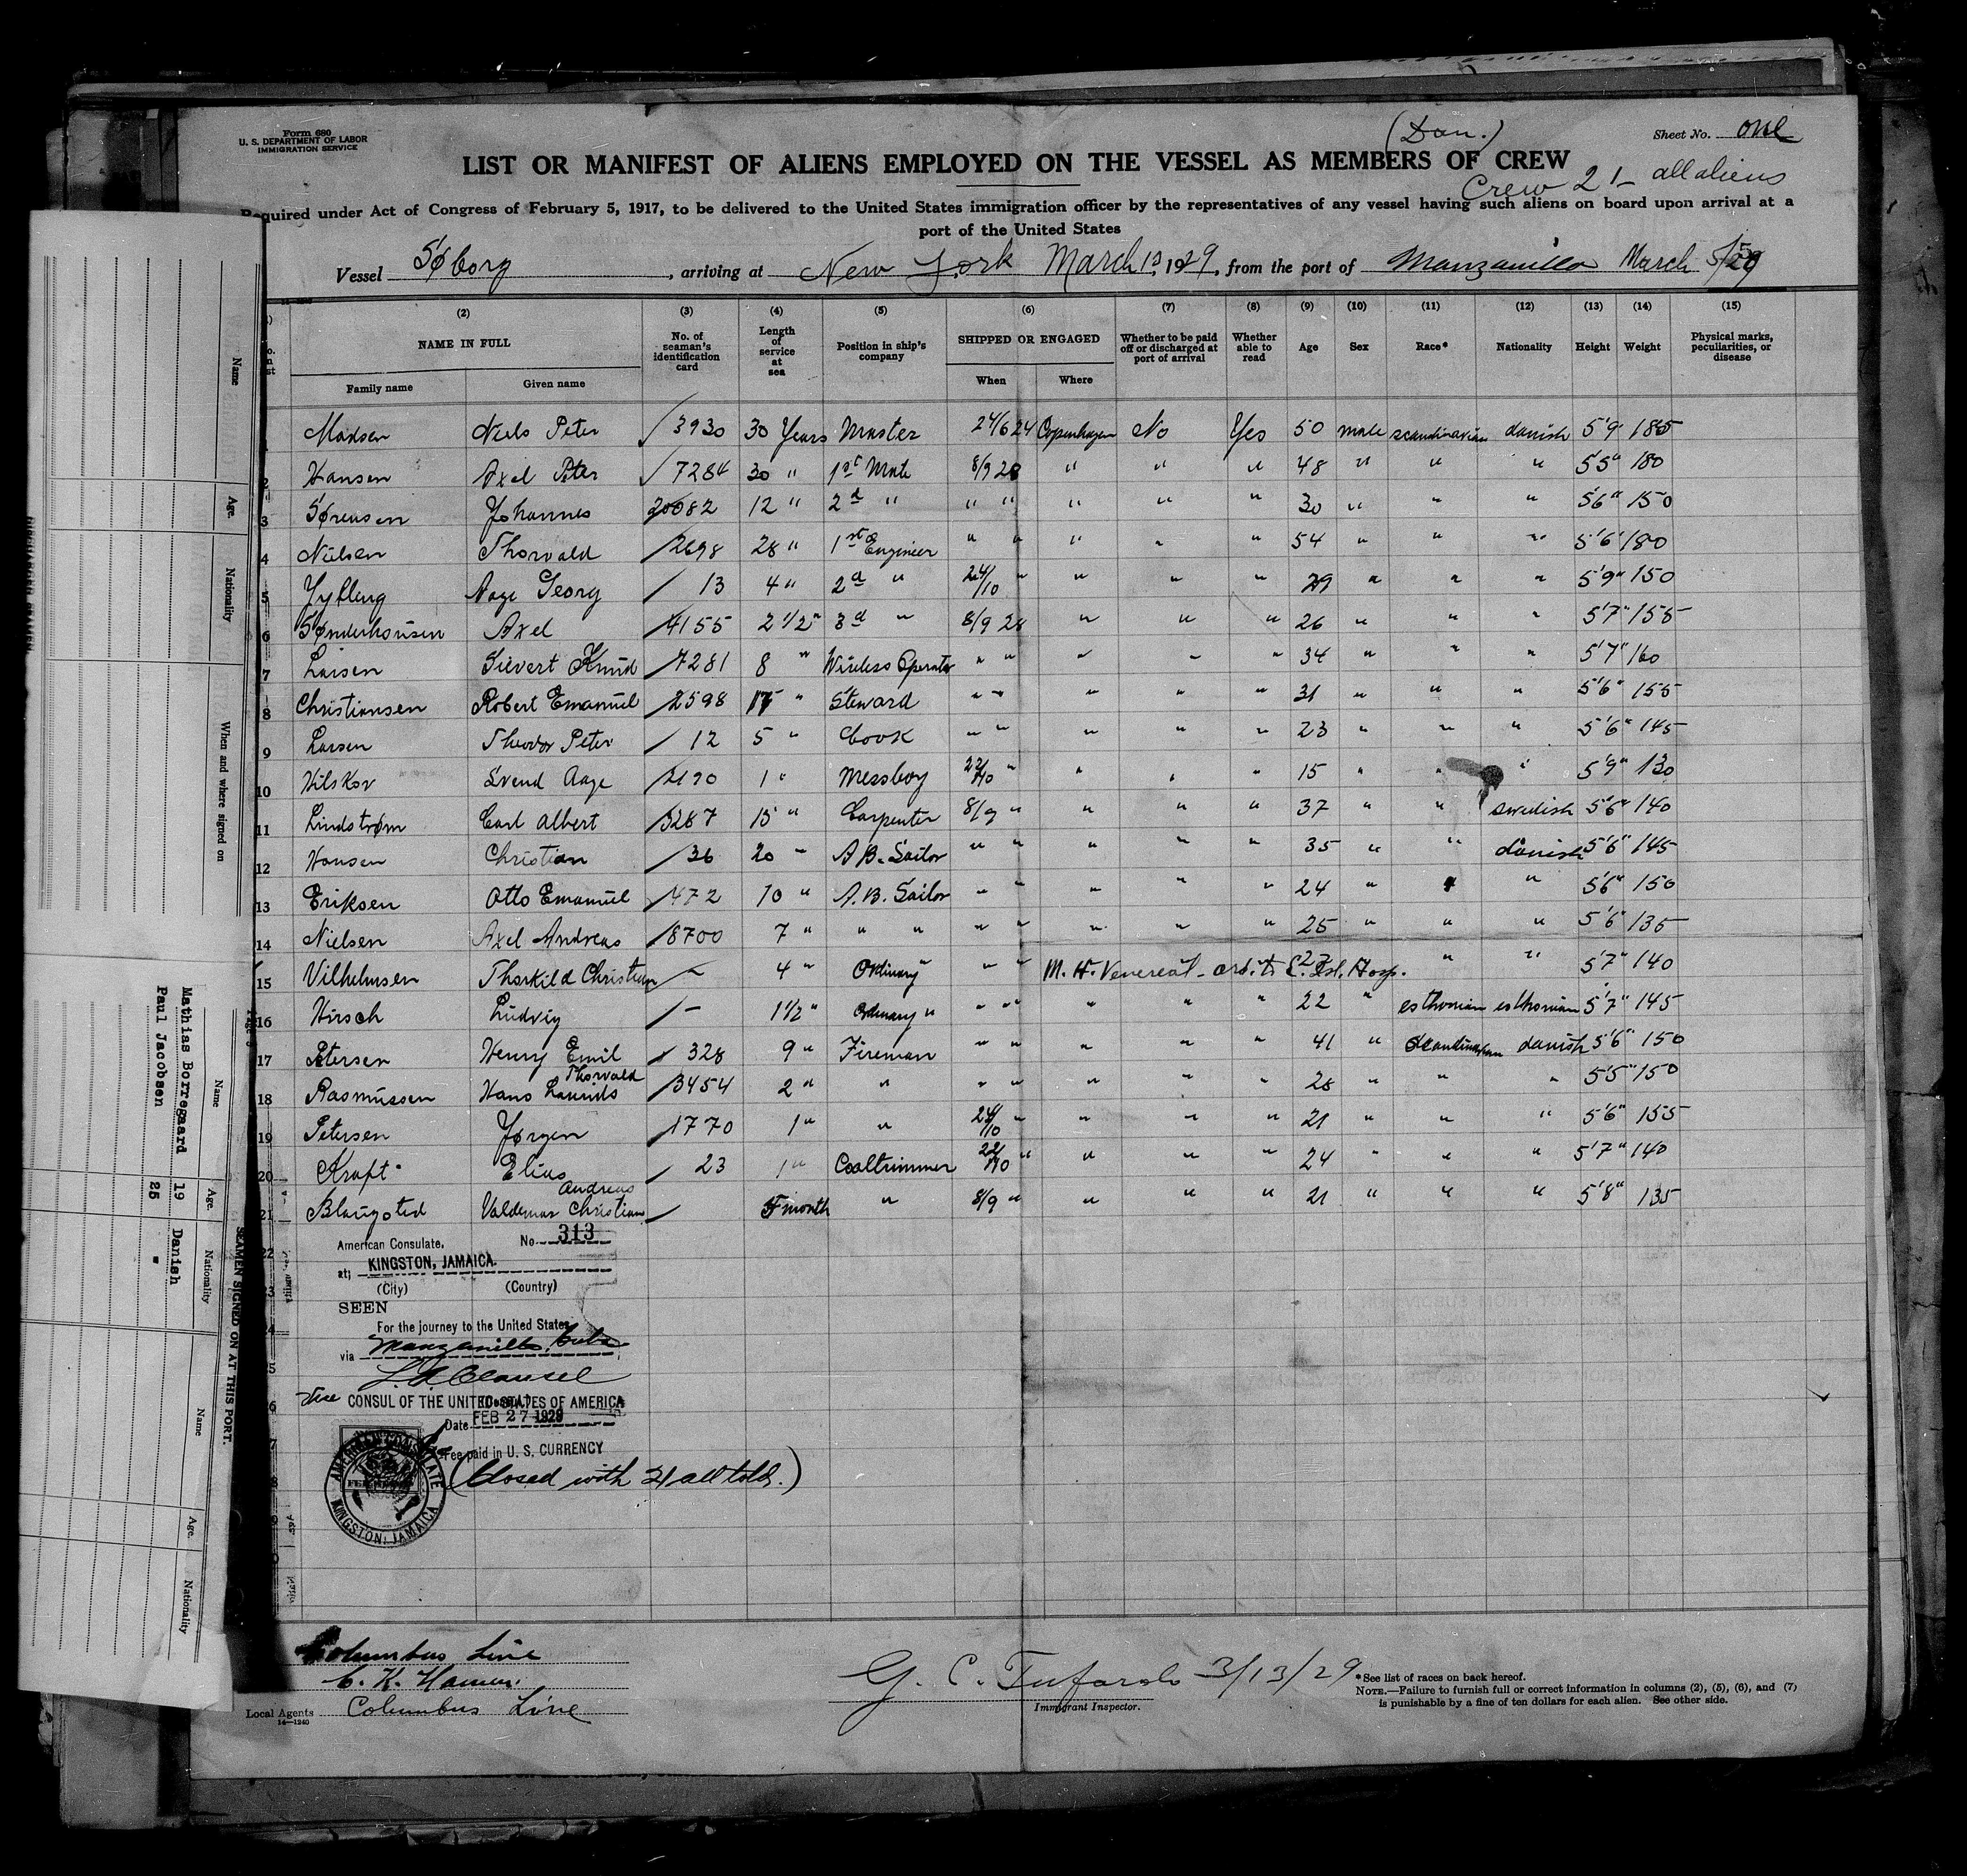 Form 680
U. S. DEPARTMENT OF LABOR
IMMIGRATION SERVICE
(Dan.)
Sheet No. one
LIST OR MANIFEST OF ALIENS EMPLOYED ON THE VESSEL AS MEMBERS OF CREW
Crew 21 - all aliens
Required under Act of Congress of February 5, 1917, to be delivered to the United States immigration officer by the representatives of any vessel having such aliens on board upon arrival at a
port of the United States
Vessel Søborg, arriving at New York March 12, 1929, from the port of Manzanillo March 5/29
(2) (3) (4) (5) (6) (7) (8) (9) (10) (11) (12) (13) (14) (15)
NAME IN FULL No. of seaman's identification card Length of service at sea Position in ship's company SHIPPED OR ENGAGED Whether to be paid off or discharged at port of arrival Whether able to read Age Sex Race* Nationality Height Weight Physical marks, peculiarities, or disease
Family name Given name When Where
1 Madsen Niels Peter 3930 30 Years Master 24/6 24 Copenhagen No Yes 50 male scandinavian danish 5'9" 185
2 Hansen Axel Peter 7284 30 " 1st Mate 8/9 28 " " " 48 " " " 5'5" 180
3 Sørensen Johannes 20082 12 " 2d " " " " " " 30 " " " 5'6" 150
4 Nielsen Thorvald 2698 28 " 1st Engineer " " " " " 54 " " " 5'6" 180
5 Aage Georg 13 4 " 2d " 24/10 " " " " 29 " " " 5'9" 150
6 Sønderhousen Axel 4155 2 1/2 " 3d " 8/9 28 " " " 26 " " " 5'7" 155
7 Larsen Sievert Knud 7281 8 " Wireless Operator " " " " " 34 " " " 5'7" 160
8 Christiansen Robert Emanuel 2598 " Steward " " " " " 31 " " " 5'6" 155
9 Larsen Theodor Peter 12 5 " Cook " " " " " 23 " " " 5'6" 145
10 Hilskov Svend Aage 2190 1 " Messboy 22/10 " " " " 15 " " " 5'9" 130
11 Lindstrøm Carl Albert 3287 15 " Carpenter 8/9 " " " " 37 " " swedish 5'6" 140
12 Hansen Christian 36 20 " A.B. Sailor " " " " " 35 " " danish 5'6" 145
13 Eriksen Otto Emanuel 472 10 " A.B. Sailor " " " " " 24 " " " 5'6" 150
14 Nielsen Axel Andreas 8700 7 " " " " " " " " 25 " " " 5'6" 135
15 Vilhelmsen Thorkild Christian - 4 " Ordinary " " " M. H. Venereal - ord. to E. Isl. Hosp. 27 " " 5'7" 140
16 Hirsch Ludvig - 1 1/2 " Ordinary " " " " " " 22 " esthonian esthonian 5'7" 145
17 Petersen Henry Emil 328 9 " Fireman " " " " " 41 " Scandinavian danish 5'6" 150
18 Rasmussen Hans Laurids Thorvald 3454 2 " " " " " " " 28 " " " 5'5" 150
19 Petersen Jørgen 1770 1 " " 24/10 " " " " 21 " " " 5'6" 155
20 Kraft Elias 23 1 " Coaltrimmer 22/10 " " " " 24 " " " 5'7" 140
21 Blaugsted Valdemar Christian Andreas month " 8/9 " " " " 21 " " " 5'8" 135
American Consulate, No. 313
at KINGSTON, JAMAICA.
(City) (Country)
SEEN
For the journey to the United States
via Manzanillo, Cuba
Vice CONSUL OF THE UNITED STATES OF AMERICA
Date FEB 27 1929
Fee paid in U. S. CURRENCY
AMERICAN CONSULATE
KINGSTON, JAMAICA
(Closed with 21 all told.)
Columbus Line
Local Agents Columbus Line
14—1240
3/13/29
Immigrant Inspector.
*See list of races on back hereof.
NOTE.—Failure to furnish full or correct information in columns (2), (5), (6), and (7)
is punishable by a fine of ten dollars for each alien. See other side.
Name Age. Nationality When and where signed on
SEAMEN SIGNED ON AT THIS PORT.
Name Age. Nationality Name Age. Nationality
Mathias Borregaard 19 Danish
Paul Jacobsen 25 "